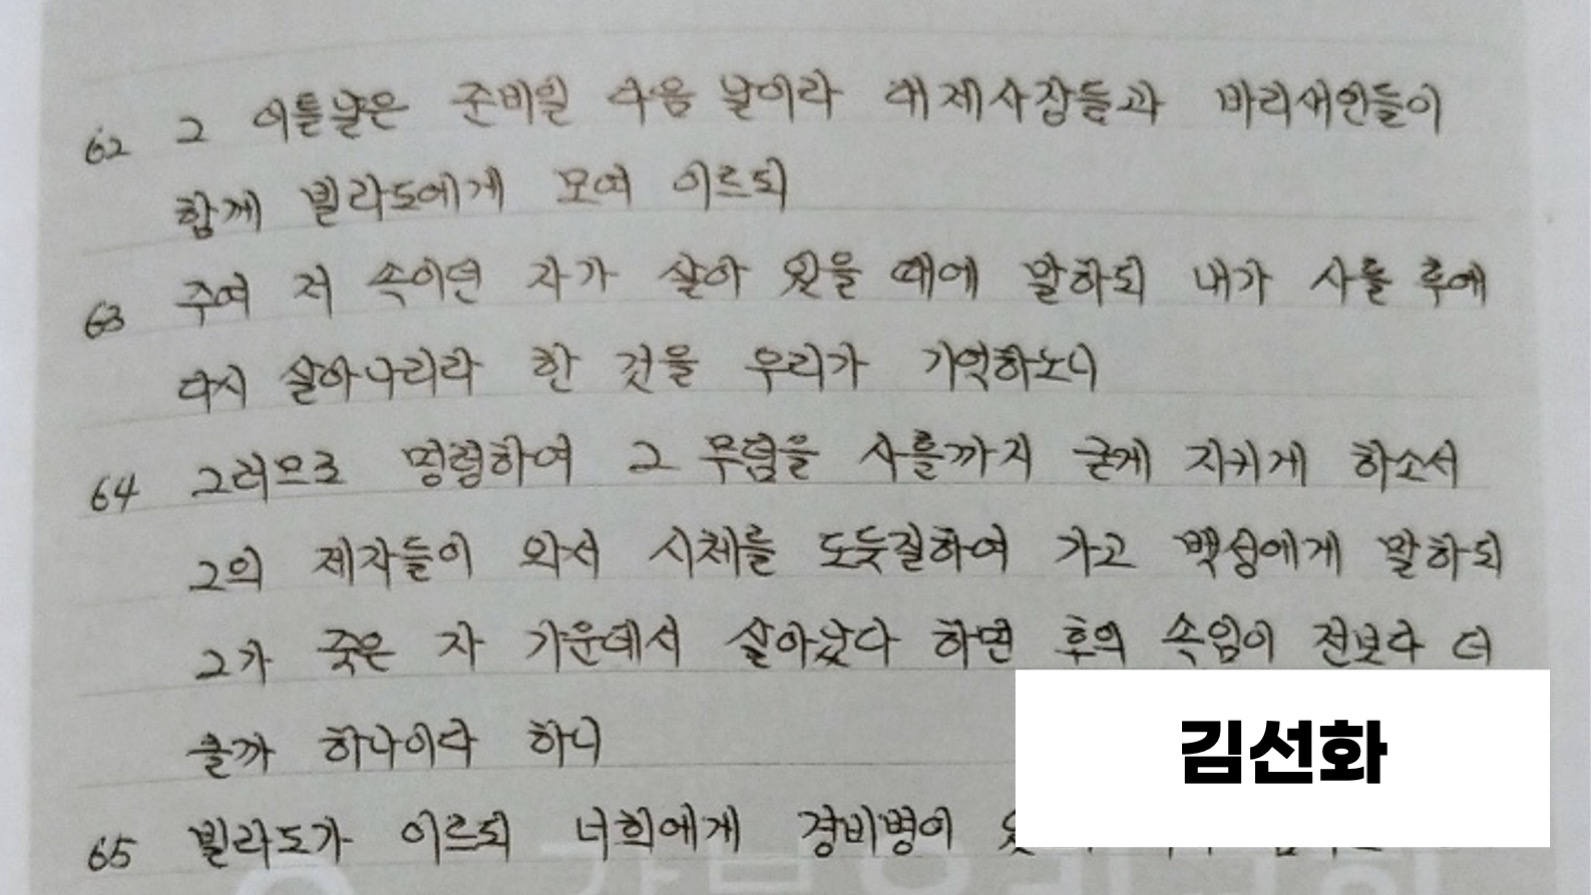 62 그 이튿날은 준비일 다음 날이라 대제사장들과 바리새인들이
함께 빌라도에게 모여 이르되
63 주여 저 속이던 자가 살아 있을 때에 말하되 내가 사흘 후에
다시 살아나리라 한 것을 우리가 기억하노니
64 그러므로 명령하여 그 무덤을 사흘까지 굳게 지키게 하소서
그의 제자들이 와서 시체를 도둑질하여 가고 백성에게 말하되
그가 죽은 자 가운데서 살아났다 하면 후의 속임이 전보다 더
클까 하나이다 하니
김선화
65 빌라도가 이르되 너희에게 경비병이